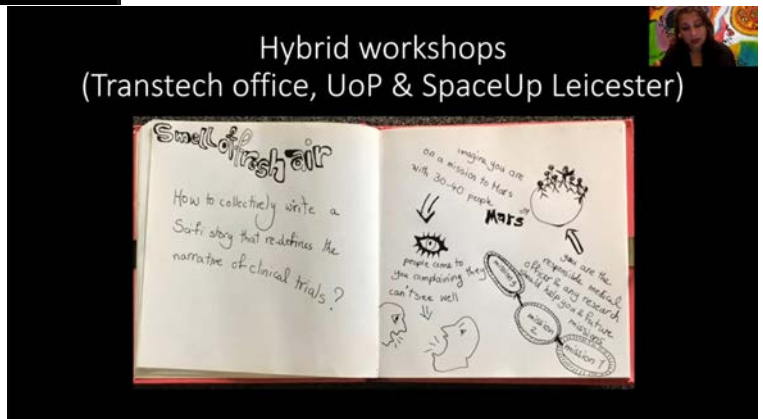 Hybrid workshops
(Transtech office, UoP & SpaceUp Leicester)
Smell of fresh air
How to collectively write a
Sci-fi story that re-defines the
narrative of clinical trials?
imagine you are
on a mission to Mars
with 30-40 people
Mars
people come to
you complaining they
can't see well
you are the
responsible medical
officer & any research
should help you & future
missions
mission 3
mission
2
mission 1